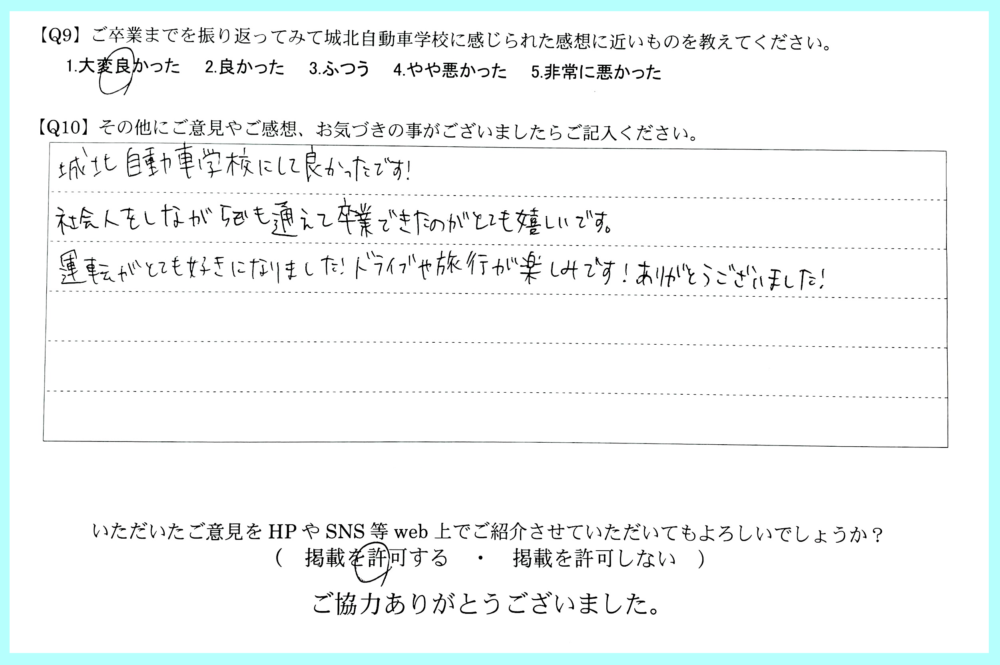 【Q9】ご卒業までを振り返ってみて城北自動車学校に感じられた感想に近いものを教えてください。
1.大変良かった 2.良かった 3.ふつう 4.やや悪かった 5.非常に悪かった
【Q10】その他にご意見やご感想、お気づきの事がございましたらご記入ください。
城北自動車学校にして良かったです!
社会人をしながらでも通えて卒業できたのがとても嬉しいです。
運転がとても好きになりました!ドライブや旅行が楽しみです!ありがとうございました!
いただいたご意見をHPやSNS等web上でご紹介させていただいてもよろしいでしょうか?
( 掲載を許可する ・ 掲載を許可しない )
ご協力ありがとうございました。